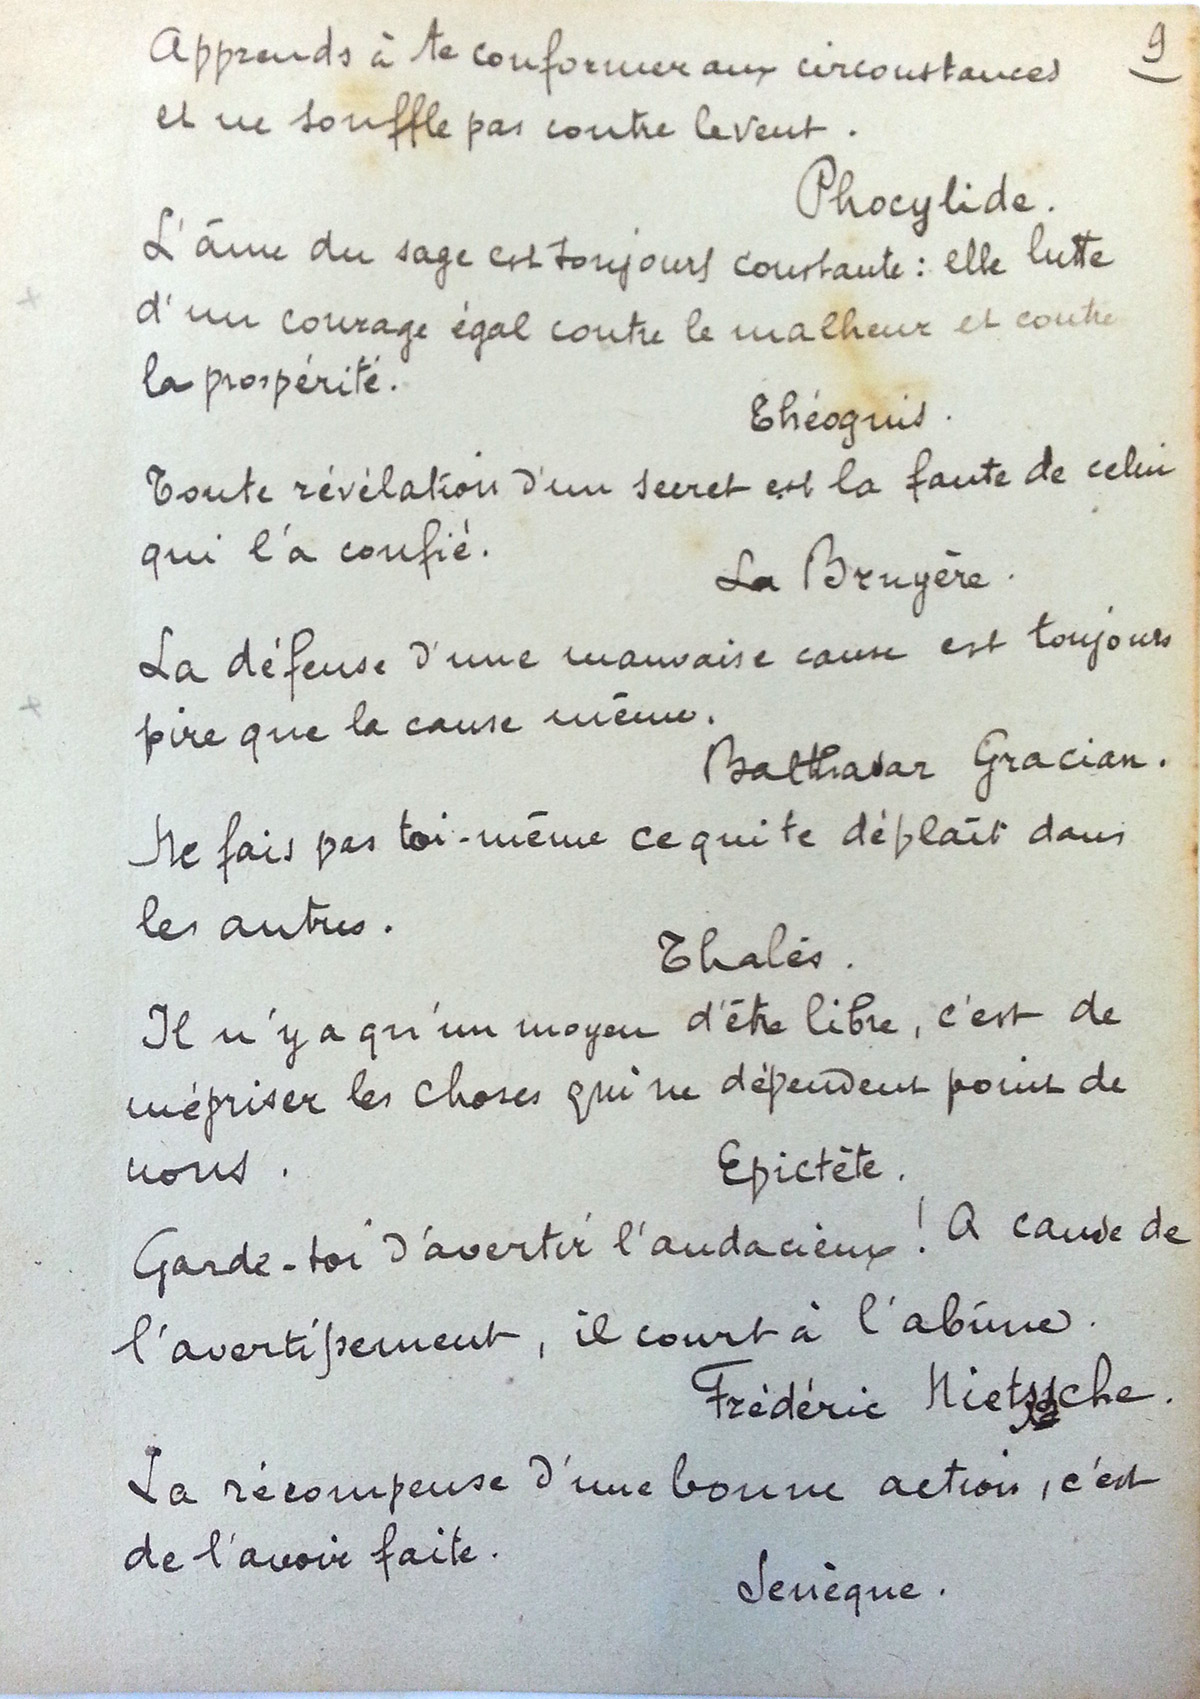 9
Apprends à te conformer aux circonstances
et ne souffle pas contre le vent.
Phocylide.
L'âme du sage est toujours constante : elle lutte
d'un courage égal contre le malheur et contre
la prospérité.
Théognis.
Toute révélation d'un secret est la faute de celui
qui l'a confié.
La Bruyère.
La défense d'une mauvaise cause est toujours
pire que la cause même.
Balthasar Gracian.
Ne fais pas toi-même ce qui te déplaît dans
les autres.
Thalès.
Il n'y a qu'un moyen d'être libre, c'est de
mépriser les choses qui ne dépendent point de
nous.
Epictète.
Garde-toi d'avertir l'audacieux ! A cause de
l'avertissement, il court à l'abîme.
Frédéric Nietzsche.
La récompense d'une bonne action, c'est
de l'avoir faite.
Senèque.